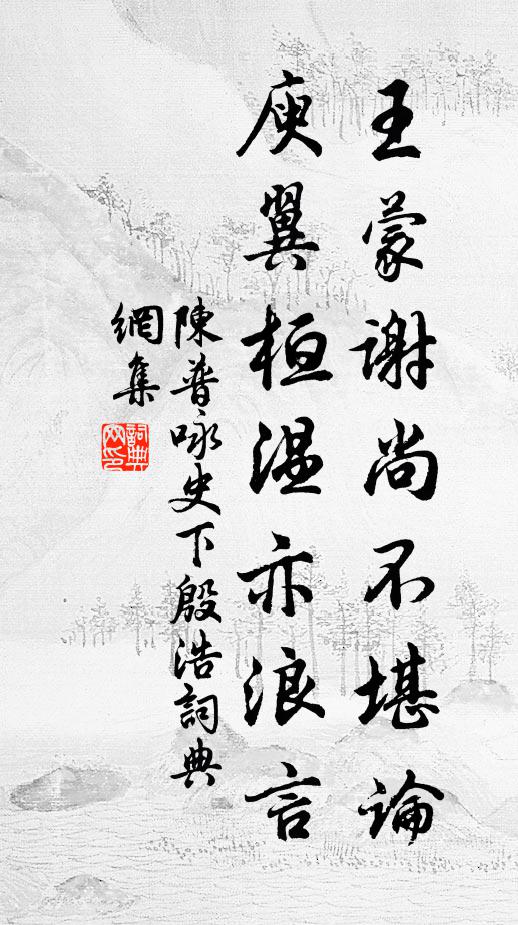 王蒙谢尚不堪論
庾翼桓温亦浪言
陳普咏史下殷浩詞典
網集
詞典
网印